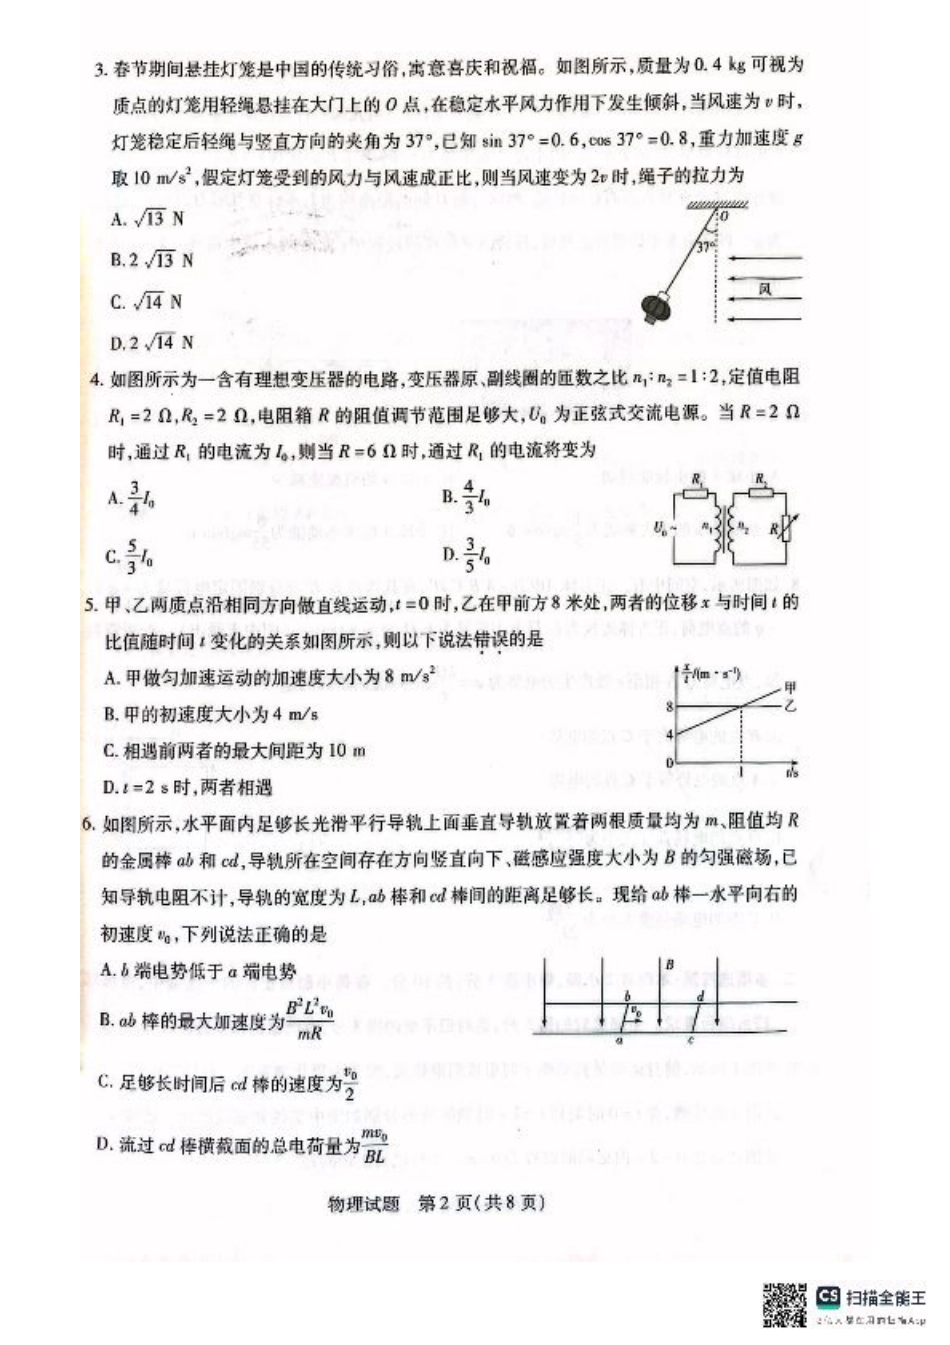 3. 春节期间悬挂灯笼是中国的传统习俗,寓意喜庆和祝福。如图所示,质量为0.4 kg 可视为
质点的灯笼用轻绳悬挂在大门上的 O 点,在稳定水平风力作用下发生倾斜,当风速为 v 时,
灯笼稳定后轻绳与竖直方向的夹角为 37°,已知 sin 37° =0.6,cos 37° =0.8,重力加速度 g
取 10 m/s²,假定灯笼受到的风力与风速成正比,则当风速变为 2v 时,绳子的拉力为
A. √13 N
B. 2√13 N
C. √14 N
D. 2√14 N
O
37°
风
4. 如图所示为一含有理想变压器的电路,变压器原、副线圈的匝数之比 n₁:n₂ =1:2,定值电阻
R₁ =2 Ω,R₂ =2 Ω,电阻箱 R 的阻值调节范围足够大,U₀ 为正弦式交流电源。当 R=2 Ω
时,通过 R₁ 的电流为 I₀,则当 R=6 Ω 时,通过 R₁ 的电流将变为
A. 3/4 I₀
B. 4/3 I₀
C. 5/3 I₀
D. 3/5 I₀
R₁ R₂
U₀~ n₁ n₂ R
5. 甲、乙两质点沿相同方向做直线运动,t=0 时,乙在甲前方 8 米处,两者的位移 x 与时间 t 的
比值随时间 t 变化的关系如图所示,则以下说法错误的是
A. 甲做匀加速运动的加速度大小为 8 m/s²
B. 甲的初速度大小为 4 m/s
C. 相遇前两者的最大间距为 10 m
D. t=2 s 时,两者相遇
x/t/(m·s⁻¹)
甲
8 乙
4
0 1 t/s
6. 如图所示,水平面内足够长光滑平行导轨上面垂直导轨放置着两根质量均为 m、阻值均 R
的金属棒 ab 和 cd,导轨所在空间存在方向竖直向下、磁感应强度大小为 B 的匀强磁场,已
知导轨电阻不计,导轨的宽度为 L,ab 棒和 cd 棒间的距离足够长。现给 ab 棒一水平向右的
初速度 v₀,下列说法正确的是
A. b 端电势低于 a 端电势
B. ab 棒的最大加速度为 B²L²v₀/mR
C. 足够长时间后 cd 棒的速度为 v₀/2
D. 流过 cd 棒横截面的总电荷量为 mv₀/BL
B
b d
v₀
a c
物理试题 第 2 页(共 8 页)
CS 扫描全能王